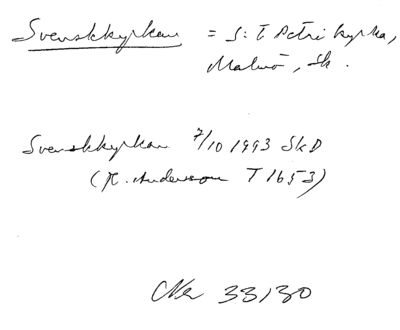 Svenskkyrkan = S:t Petri kyrka,
Malmö, Sk.
Svenskkyrkan 7/10 1993 SkD
(K. Andersson T 1653)
33130